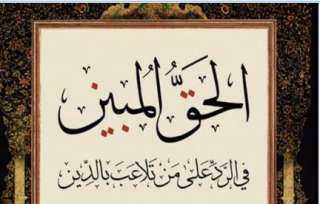 الحَقُّ المُبين
في الرَدِّ عَلى مَن تَلاعَبَ بِالدِّين